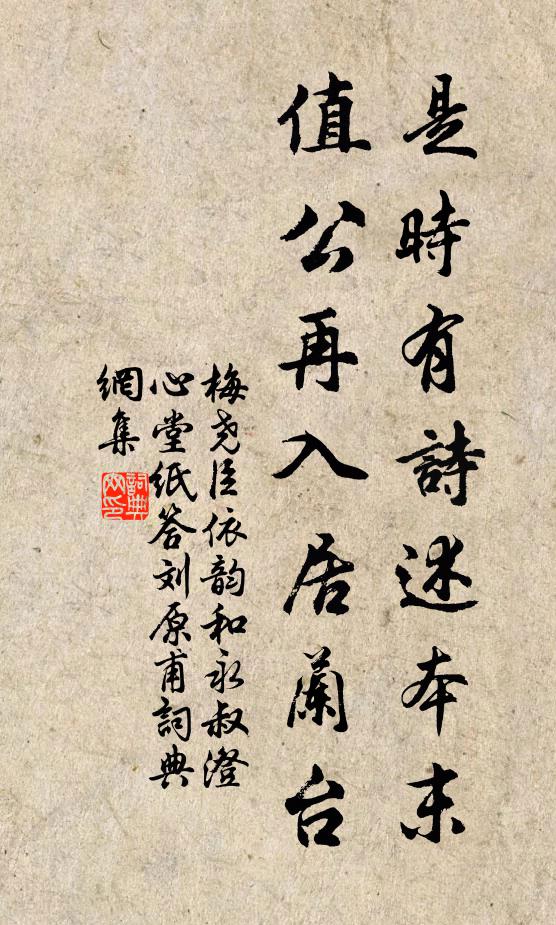 是時有詩述本末
值公再入居蘭台
梅尧臣依韵和永叔澄
心堂纸答刘原甫詞典
網集
詞典
网印